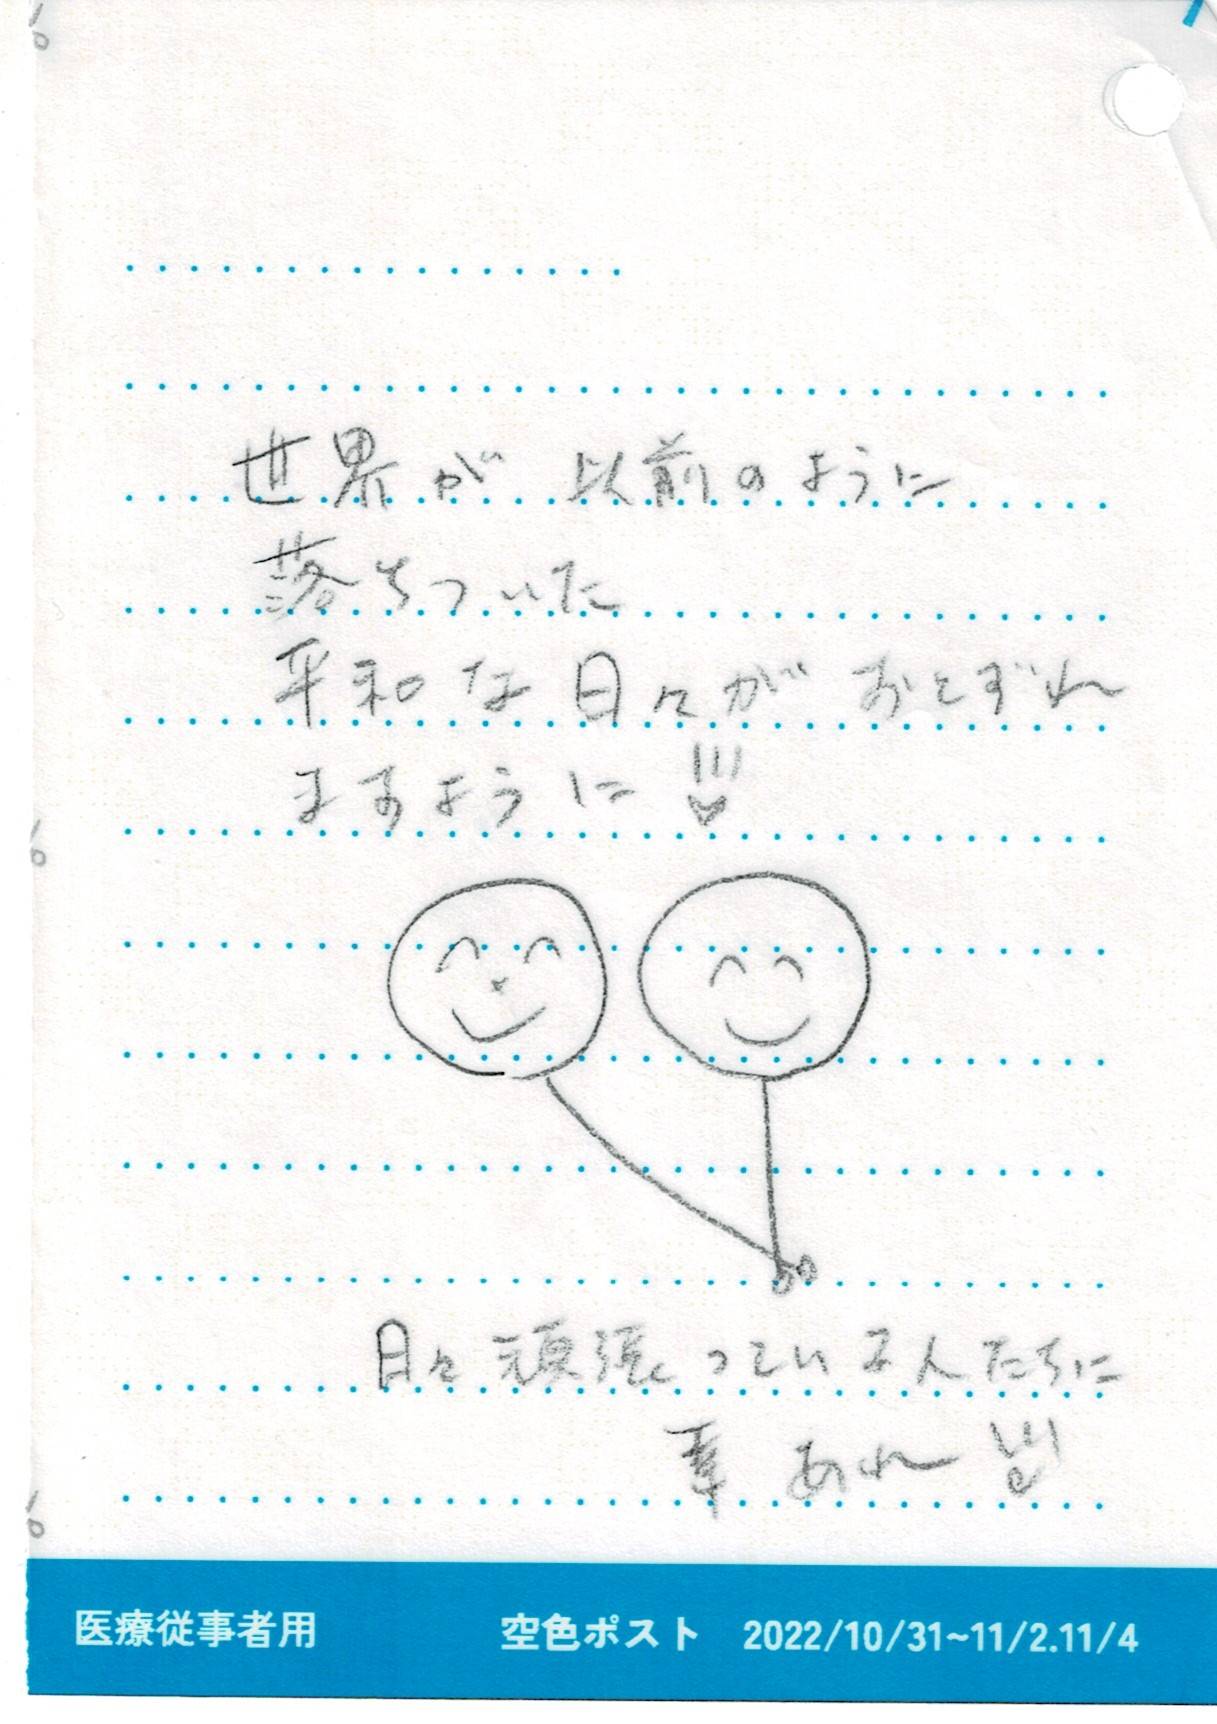 世界が 以前のように
落ちついた
平和な日々が おとずれ
ますように !!!
日々 頑張っている人たちに
幸 あれ !!!
医療従事者用 空色ポスト 2022/10/31~11/2.11/4